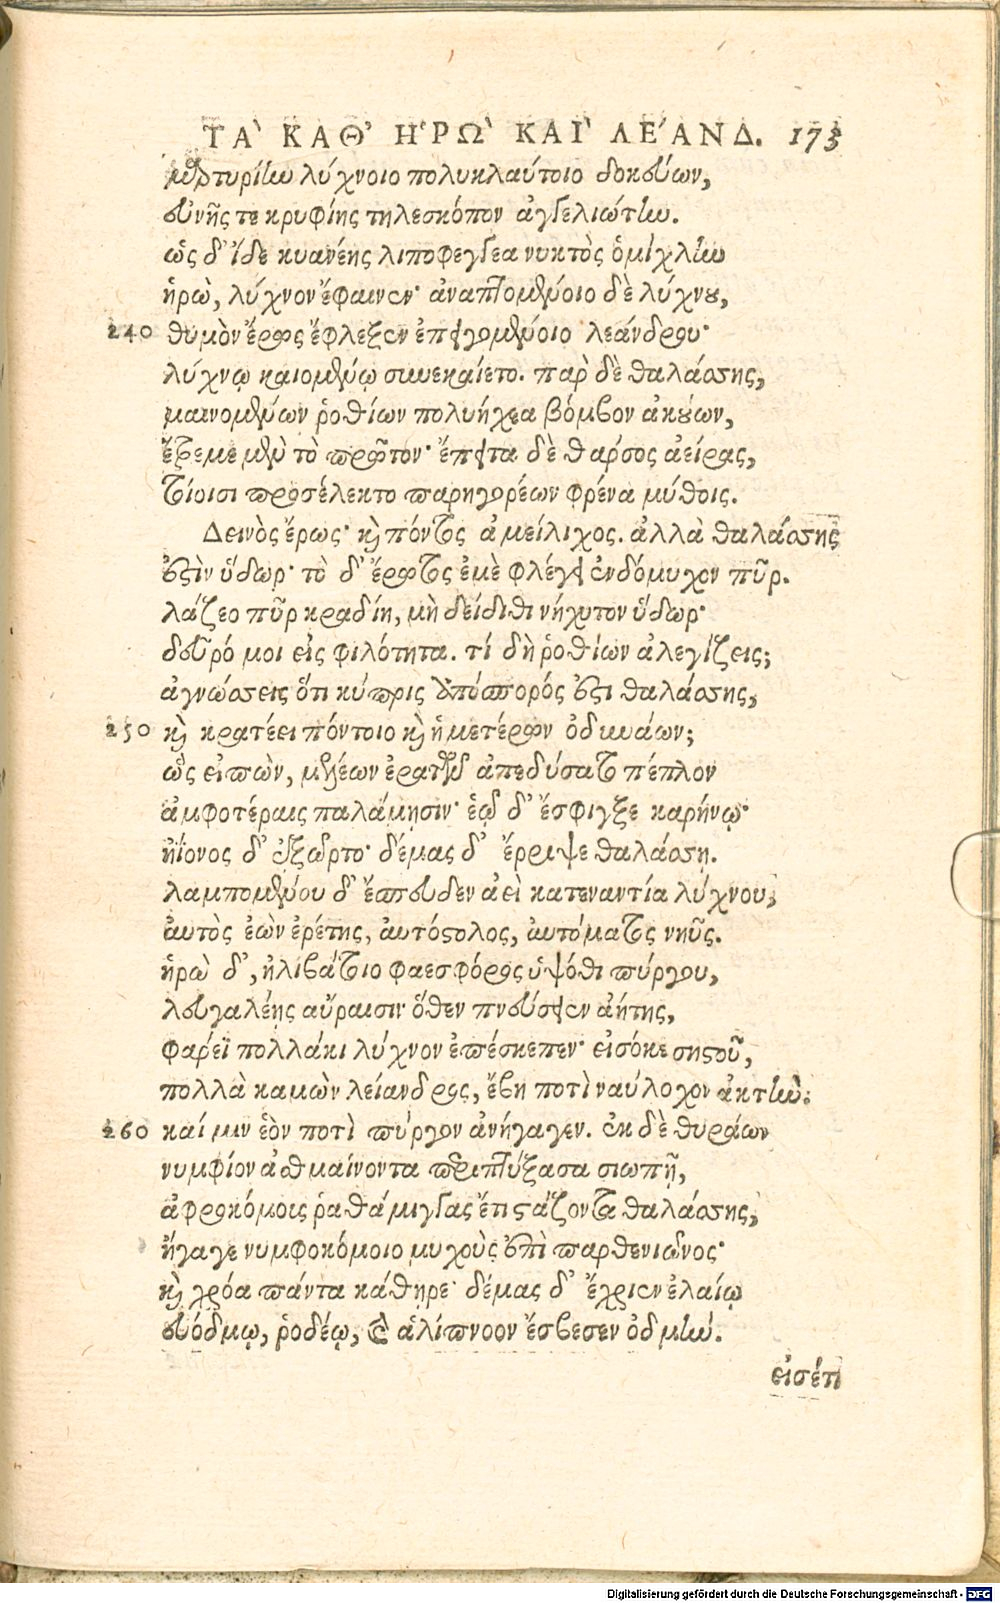 ΤᾺ ΚΑΘ' Η῾ΡῺ ΚΑῚ ΛΕ´ΑΝΔ. 173
μαρτυρίην λύχνοιο πολυκλαύτοιο δοκεύων,
εὐνῆς τε κρυφίης τηλεσκόπον ἀγγελιώτην.
ὡς δ' ἴδε κυανέης λιποφεγγέα νυκτὸς ὁμίχλην
ἡρὼ, λύχνον ἔφαινεν· ἀναπτομένοιο δὲ λύχνου,
240 θυμὸν ἔρως ἔφλεξεν ἐπειγομένοιο λεάνδρου·
λύχνῳ καιομένῳ συνεκαίετο. παρ δὲ θαλάσσης,
μαινομένων ῥοθίων πολυήχεα βόμβον ἀκούων,
ἔτρεμε μὲν τὸ πρῶτον· ἔπειτα δὲ θάρσος ἀείρας,
τοίοισι προσέλεκτο παρηγορέων φρένα μύθοις.
Δεινὸς ἔρως· καὶ πόντος ἀμείλιχος. ἀλλὰ θαλάσσης
ἐστὶν ὕδωρ· τὸ δ' ἔρωτος ἐμὲ φλέγει ἐνδόμυχον πῦρ.
λάζεο πῦρ κραδίη, μὴ δείδιθι νήχυτον ὕδωρ·
δεῦρό μοι εἰς φιλότητα. τί δὴ ῥοθίων ἀλεγίζεις;
ἀγνώσσεις ὅτι κύπρις ἀπόσπορός ἐστι θαλάσσης,
250 καὶ κρατέει πόντοιο καὶ ἡμετέρων ὀδυνάων;
ὣς εἰπὼν, μελέων ἐρατῶν ἀπεδύσατο πέπλον
ἀμφοτέραις παλάμησιν· ἑῷ δ' ἔσφιγξε καρήνῳ·
ἠϊόνος δ' ἐξῶρτο· δέμας δ' ἔρριψε θαλάσσῃ.
λαμπομένου δ' ἔσπευδεν ἀεὶ κατεναντία λύχνου,
ἀυτὸς ἐὼν ἐρέτης, ἀυτόστολος, ἀυτόματος νηῦς.
ἡρὼ δ', ἠλιβάτοιο φαεσφόρος ὑψόθι πύργου,
λευγαλέῃς αὔραισιν ὅθεν πνεύσειεν ἀήτης,
φάρεϊ πολλάκι λύχνον ἐπέσκεπεν· εἰσόκε σηστοῦ,
πολλὰ καμὼν λείανδρος, ἔβη ποτὶ ναύλοχον ἀκτὴν.
260 καί μιν ἑὸν ποτὶ πύργον ἀνήγαγεν. ἐκ δὲ θυράων
νυμφίον ἀσθμαίνοντα περιπτύξασα σιωπῇ,
ἀφροκόμοις ῥαθάμιγγας ἔτι στάζοντα θαλάσσης,
ἤγαγε νυμφοκόμοιο μυχοὺς ἐπὶ παρθενιῶνος·
καὶ χρόα πάντα κάθηρε· δέμας δ' ἔχριεν ἐλαίῳ
εὐόδμῳ, ῥοδέῳ, καὶ ἁλίπνοον ἔσβεσεν ὀδμήν.
εἰσέτι